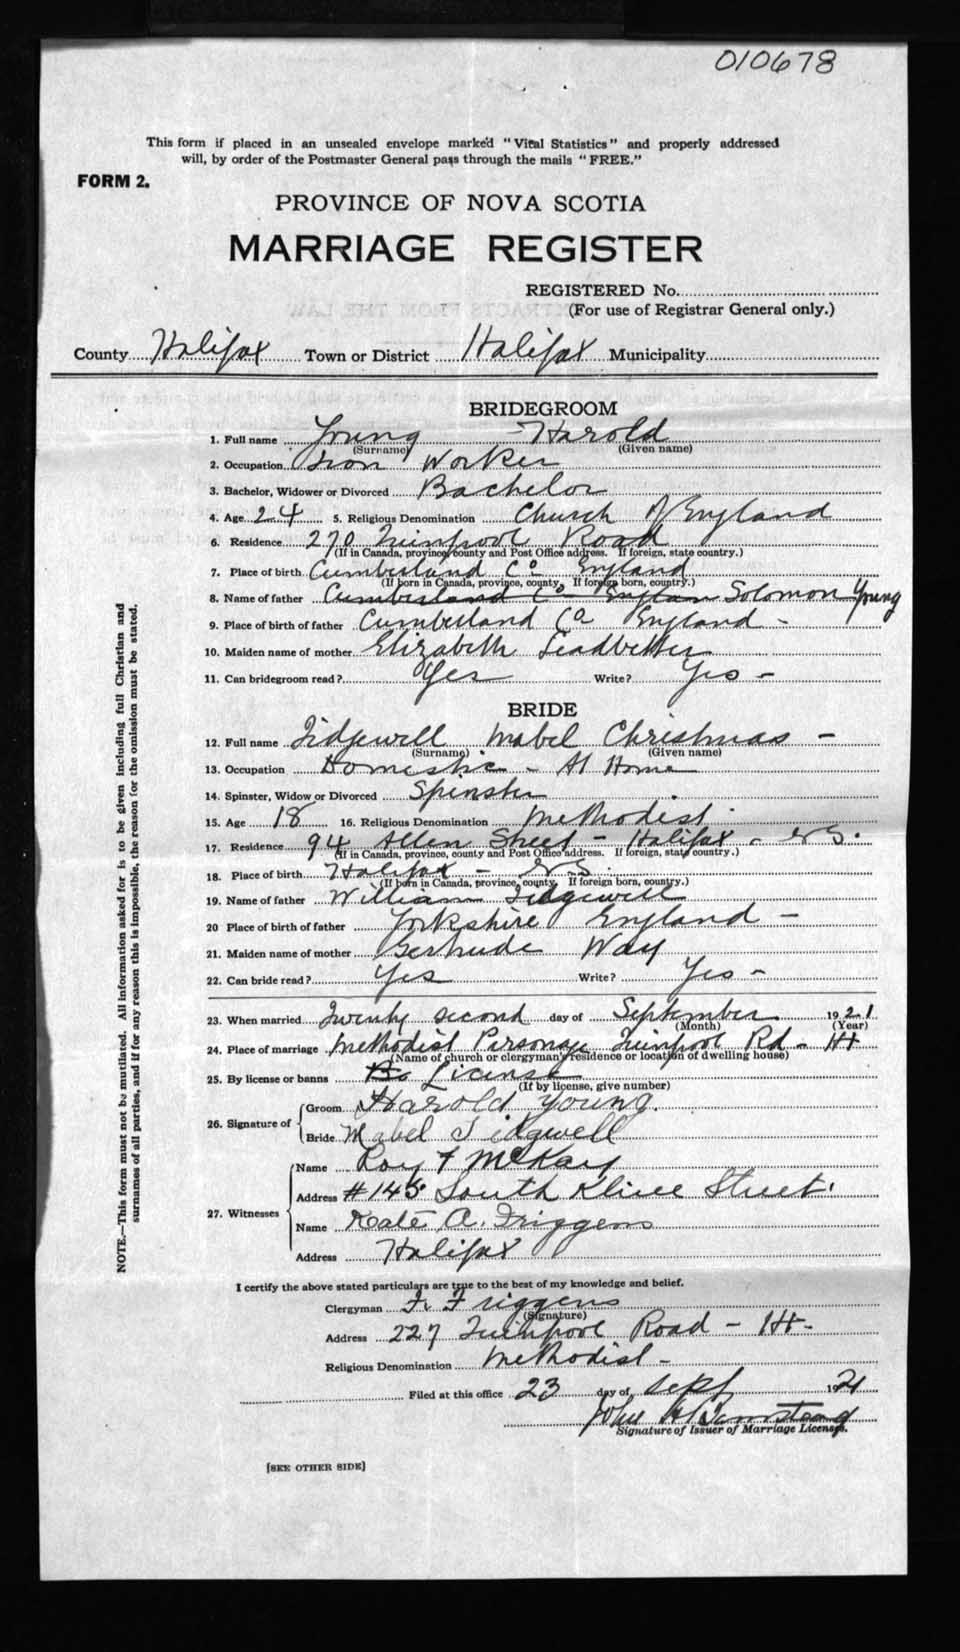 010678
This form if placed in an unsealed envelope marked "Vital Statistics" and properly addressed
will, by order of the Postmaster General pass through the mails "FREE."
FORM 2.
PROVINCE OF NOVA SCOTIA
MARRIAGE REGISTER
REGISTERED No.
(For use of Registrar General only.)
County Halifax Town or District Halifax Municipality
BRIDEGROOM
1. Full name Young Harold
(Surname) (Given name)
2. Occupation Iron Worker
3. Bachelor, Widower or Divorced Bachelor
4. Age 24 5. Religious Denomination Church of England
6. Residence 270 Quinpool Road
(If in Canada, province, county and Post Office address. If foreign, state country.)
7. Place of birth Cumberland Co England
(If born in Canada, province, county. If foreign born, country.)
8. Name of father Cumberland Co Englan Solomon Young
9. Place of birth of father Cumberland Co England -
10. Maiden name of mother Elizabeth Leadbetter
11. Can bridegroom read? Yes Write? Yes -
BRIDE
12. Full name Tidgwell Mabel Christmas -
(Surname) (Given name)
13. Occupation Domestic - At Home
14. Spinster, Widow or Divorced Spinster
15. Age 18 16. Religious Denomination Methodist
17. Residence 94 Allen Street - Halifax - N S.
(If in Canada, province, county and Post Office address. If foreign, state country.)
18. Place of birth Halifax - N S.
(If born in Canada, province, county. If foreign born, country.)
19. Name of father William Tidgewell
20 Place of birth of father Yorkshire England -
21. Maiden name of mother Gertrude Way
22. Can bride read? Yes Write? Yes -
23. When married Twenty second day of September 1921
(Month) (Year)
24. Place of marriage Methodist Parsonage Quinpool Rd - Hx
(Name of church or clergyman's residence or location of dwelling house)
25. By license or banns License
(If by license, give number)
26. Signature of
Groom Harold Young.
Bride Mabel Tidgwell
27. Witnesses
Name Roy F McKay
Address #145 South Kline Street.
Name Kate A. Friggens
Address Halifax
I certify the above stated particulars are true to the best of my knowledge and belief.
Clergyman F. Friggens
(Signature)
Address 227 Quinpool Road - Hx-
Religious Denomination Methodist -
Filed at this office 23 day of Sept 1921
John H
Signature of Issuer of Marriage Licenses.
[SEE OTHER SIDE]
NOTE.—This form must not be mutilated. All information asked for is to be given including full Christian and
surnames of all parties, and if for any reason this is impossible, the reason for the omission must be stated.